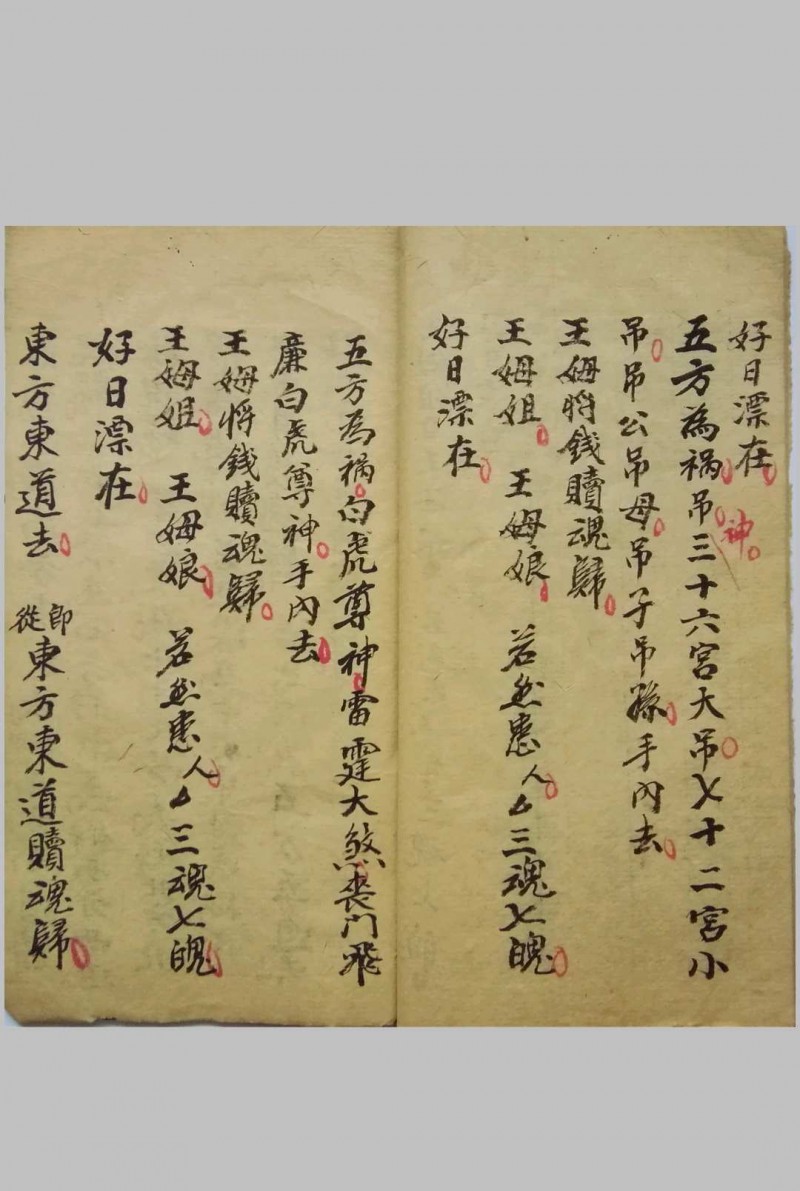 好日漂在
五方為禍吊神三十六宮大吊七十二宮小
吊吊公吊母吊子吊孫手內去
王姆將錢贖魂歸
王姆姐 王姆娘 若然患人厶三魂七魄
好日漂在
五方為禍白虎尊神雷霆大煞喪門飛
廉白虎尊神手內去
王姆將錢贖魂歸
王姆姐 王姆娘 若然患人厶三魂七魄
好日漂在
東方東道去 即從東方東道贖魂歸